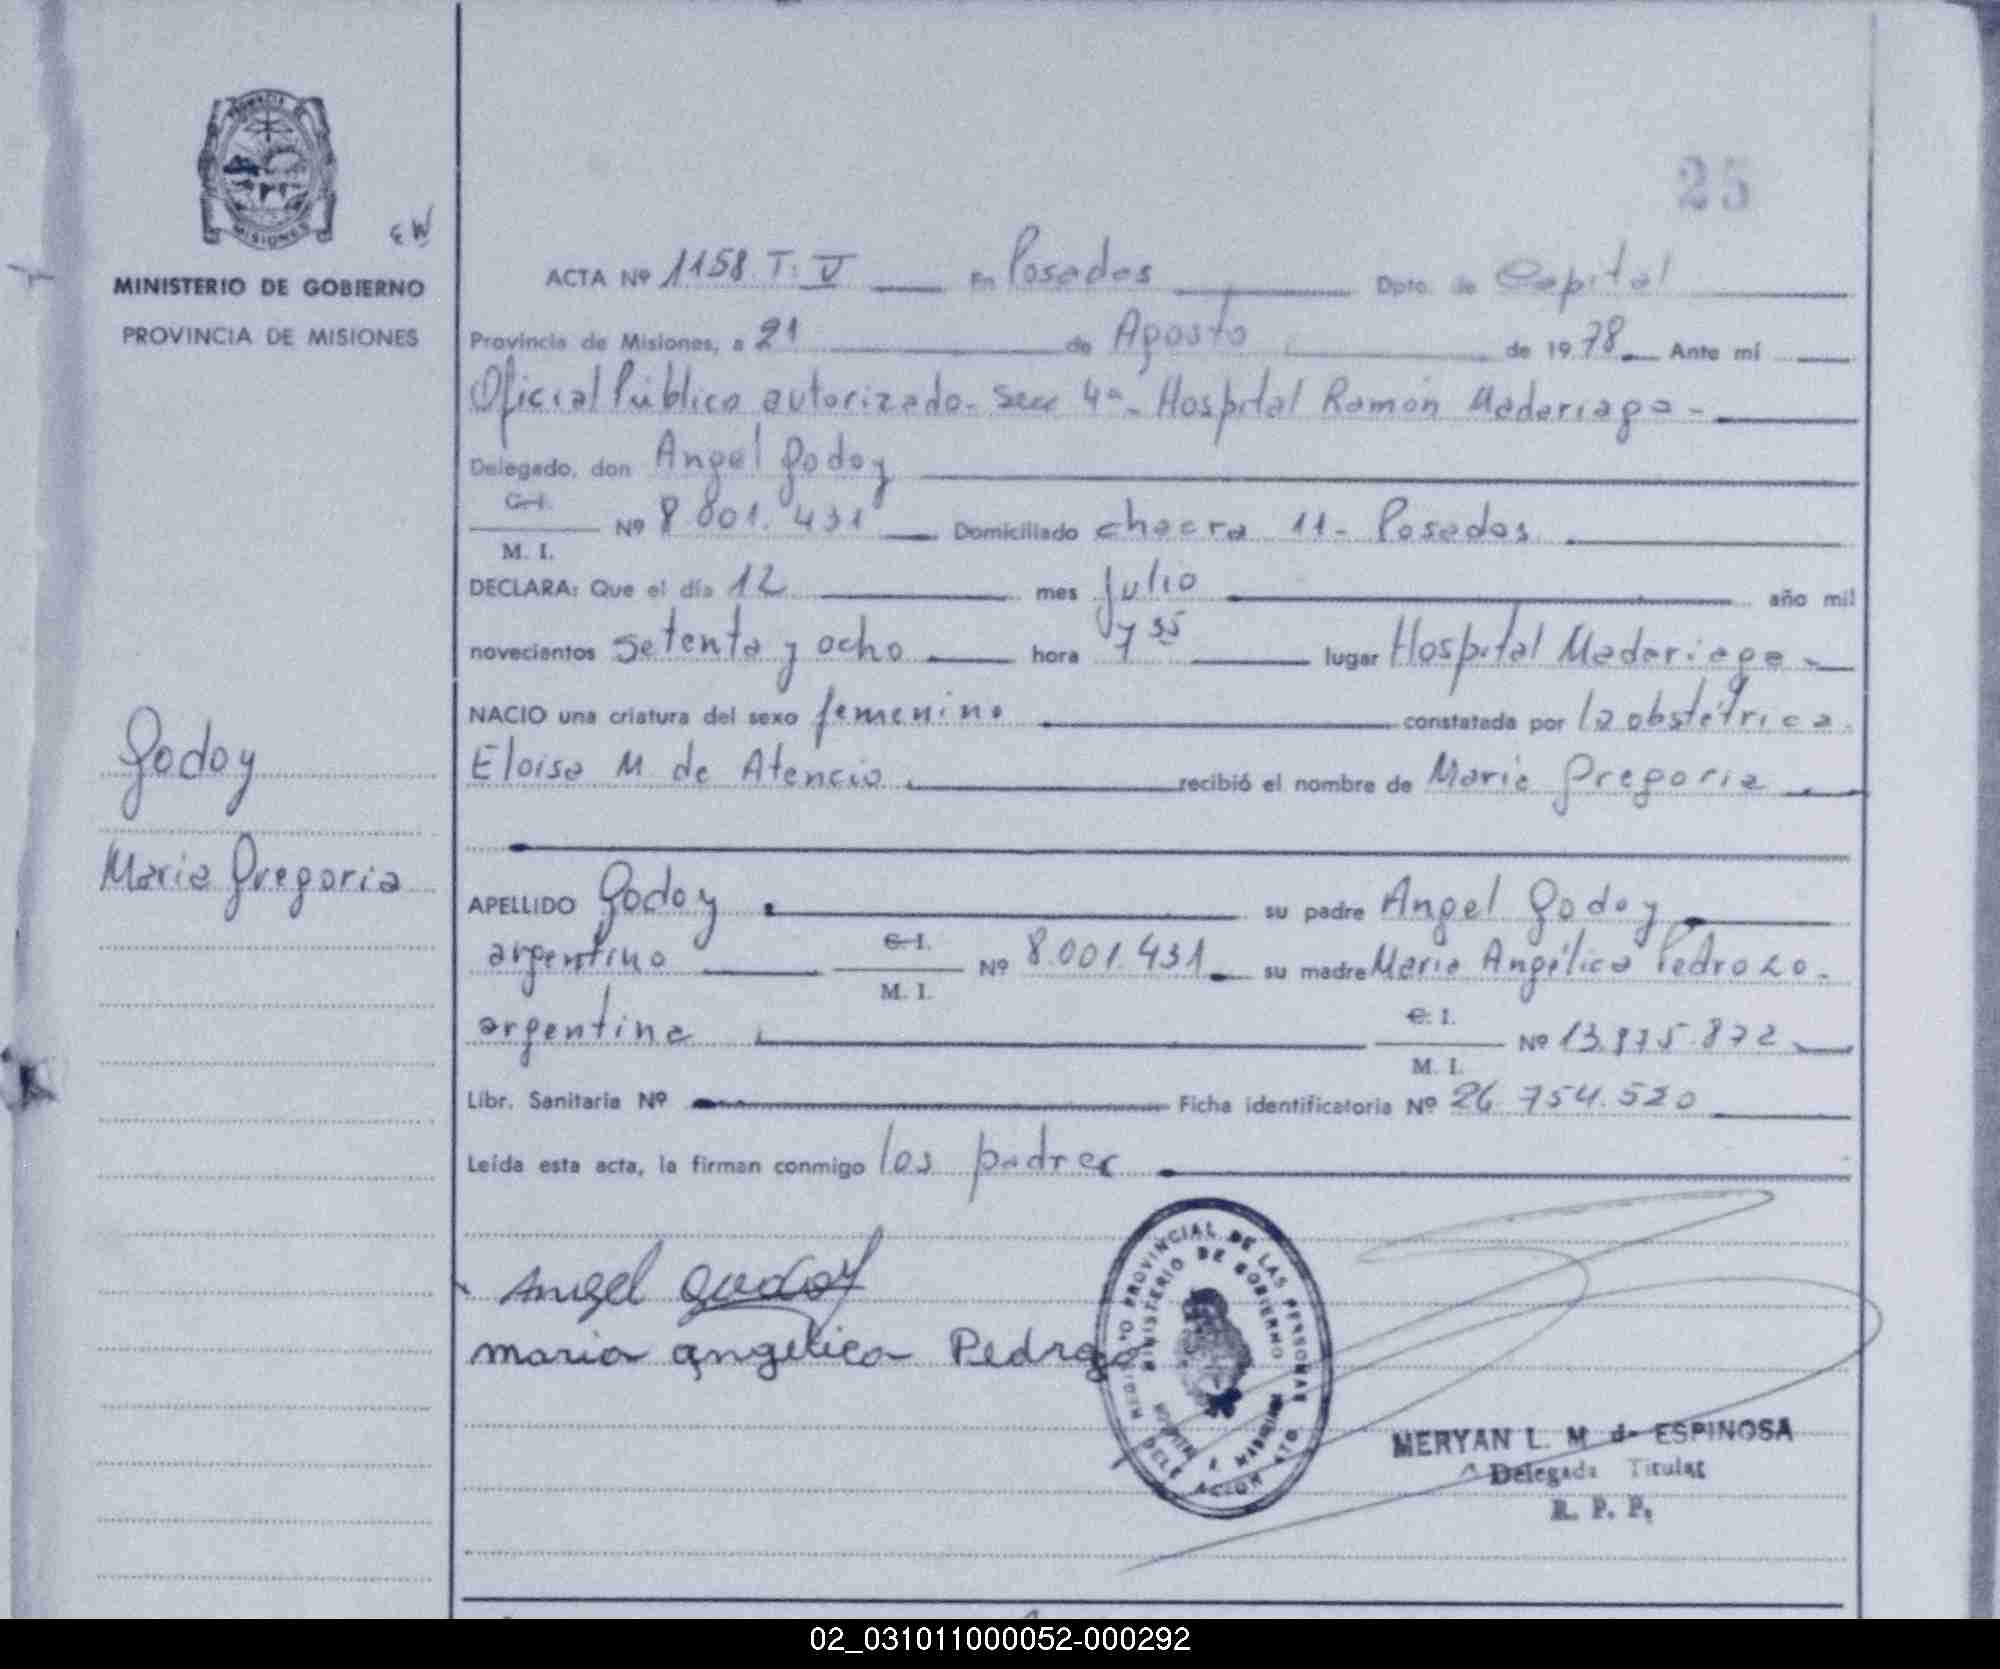 25
MISIONES
EW
MINISTERIO DE GOBIERNO
PROVINCIA DE MISIONES
ACTA Nº 1158. T: V En Posadas Dpto. de Capital
Provincia de Misiones, a 21 de Agosto de 1978 Ante mí
Oficial Público autorizado. Secc 4ª. Hospital Ramón Madariaga -
Delegado, don Angel Godoy
C. I.
M. I.
Nº 8.001.431 Domiciliado chacra 11 - Posadas
DECLARA: Que el día 12 mes Julio año mil
novecientos setenta y ocho hora 7 35 lugar Hospital Madariaga -
NACIO una criatura del sexo femenino constatada por la obstétrica
Eloisa M de Atencio recibió el nombre de Maria Gregoria
Godoy
Maria Gregoria
APELLIDO Godoy su padre Angel Godoy
argentino C. I. M. I. Nº 8.001.431 su madre Maria Angélica Pedrozo -
argentina C. I. M. I. Nº
Libr. Sanitaria Nº Ficha identificatoria Nº 26.754.520
Leída esta acta, la firman conmigo los padres
Angel Godoy
maria angelica Pedrozo
PROVINCIAL DE LAS PERSONAS
MINISTERIO DE GOBIERNO
MERYAN L. M de ESPINOSA
Delegada Titular
R. P. P.
02_031011000052-000292